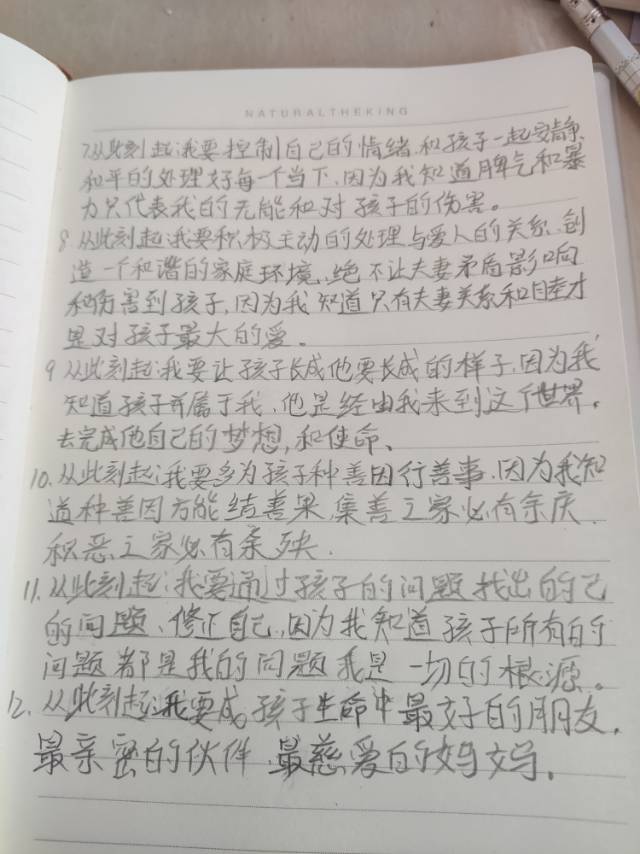 NATURALTHEKING
7.从此刻起:我要控制自己的情绪.和孩子一起安静
和平的处理好每一个当下.因为我知道脾气和暴
力只代表我的无能和对孩子的伤害。
8.从此刻起:我要积极主动的处理与爱人的关系.创
造一个和谐的家庭环境.绝不让夫妻矛盾影响
和伤害到孩子,因为我知道只有夫妻关系和睦才
是对孩子最大的爱。
9 从此刻起:我要让孩子长成他要长成的样子,因为我
知道孩子并属于我.他是经由我来到这个世界.
去完成他自己的梦想,和使命、
10.从此刻起:我要多为孩子种善因行善事.因为我知
道种善因方能结善果.集善之家必有余庆.
积恶之家必有余殃.
11.从此刻起:我要通过孩子的问题找出的己
的问题、修正自己.因为我知道孩子所有的
问题都是我的问题我是一切的根源。
12.从此刻起:我要成孩子生命中最好的朋友.
最亲密的伙伴 最慈爱的妈妈.